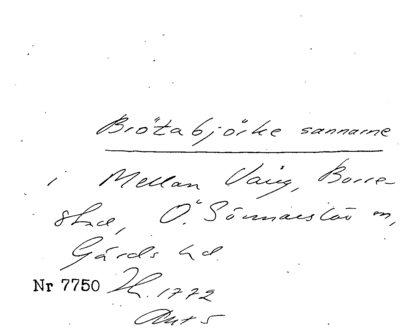 Brötabjörke sannarne
i Mellan Väng, Borre-
stad, Ö. Sönnarslöv sn,
Gärds hd.
Nr 7750 Th. 1772
Akt 5